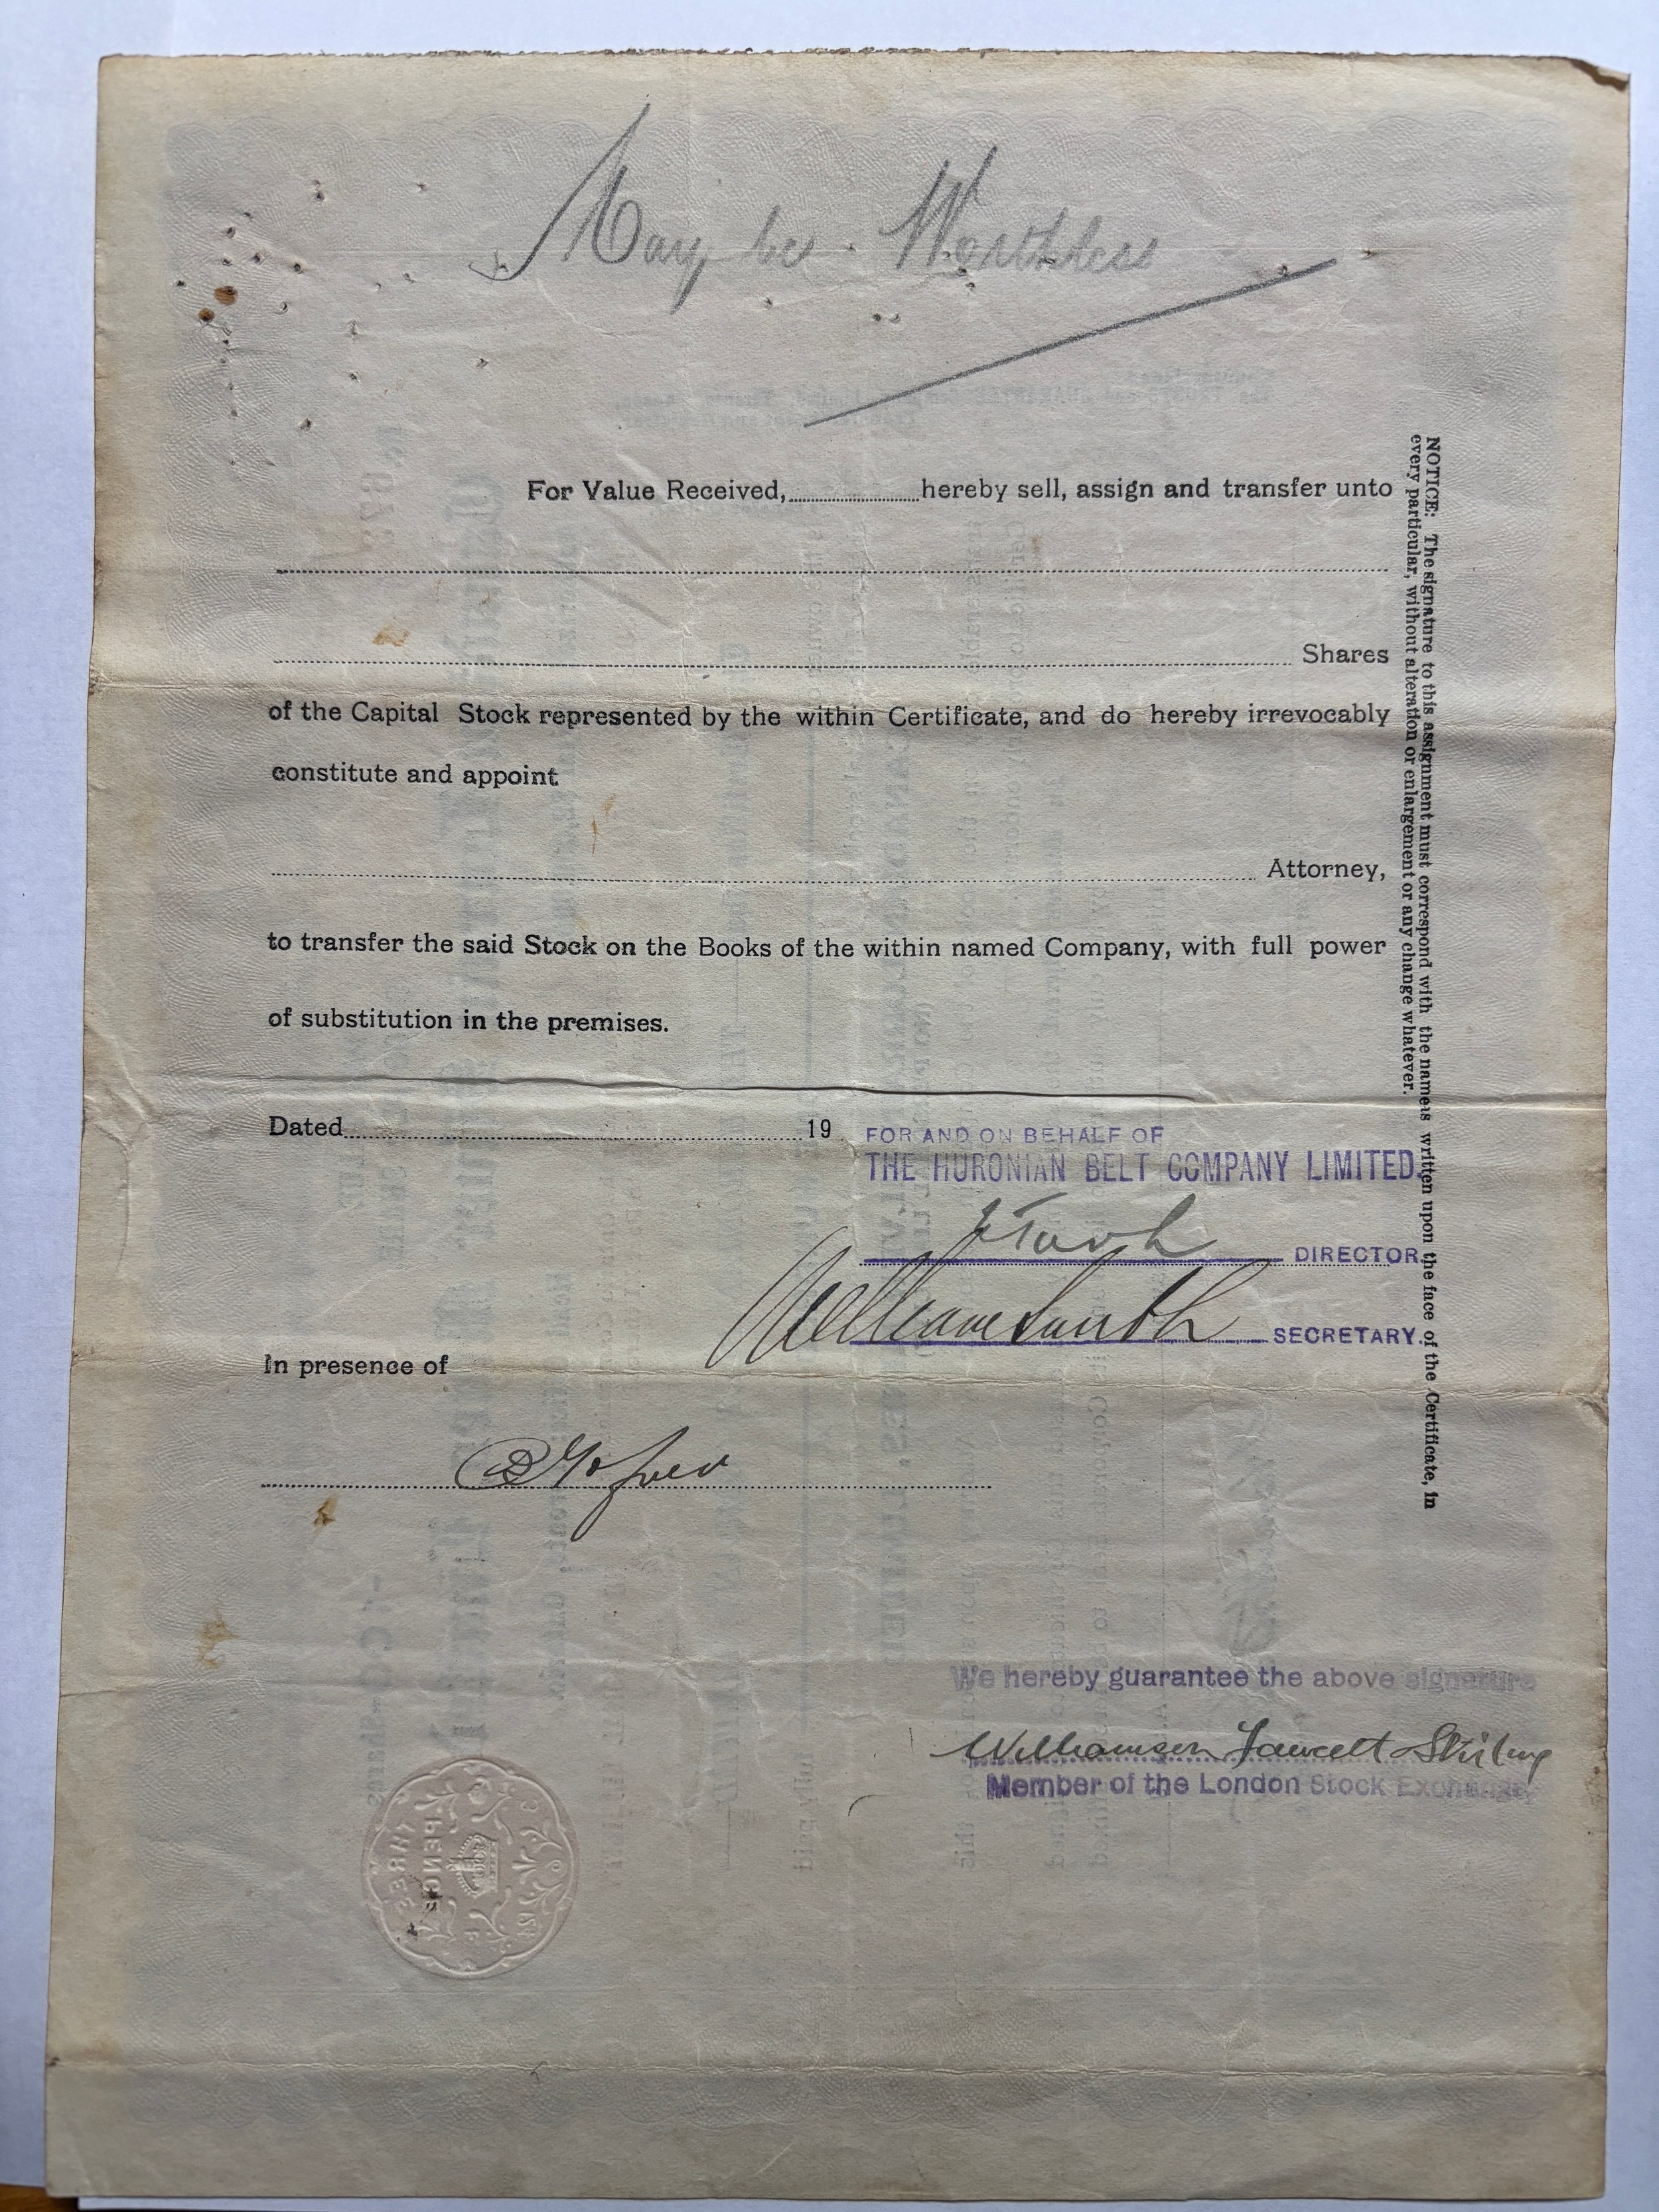 May be Worthless
For Value Received, hereby sell, assign and transfer unto
Shares
of the Capital Stock represented by the within Certificate, and do hereby irrevocably
constitute and appoint
Attorney,
to transfer the said Stock on the Books of the within named Company, with full power
of substitution in the premises.
Dated 19
FOR AND ON BEHALF OF
THE HURONIAN BELT COMPANY LIMITED.
DIRECTOR.
William Smith SECRETARY.
In presence of
We hereby guarantee the above signature
Williamson Fawcett Stirling
Member of the London Stock Exchange
THREE
PENCE
NOTICE: The signature to this assignment must correspond with the names written upon the face of the Certificate, in
every particular, without alteration or enlargement or any change whatever.